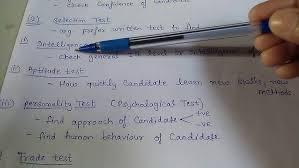 - Check Confidence of Candidate
(2) Selection Test
- org prefer written test to
(i) Intelligence
- Check general
(ii) Aptitude test
- How quickly Candidate learn new skills, new methods.
(iii) personality Test (Psychological Test)
- find approach of Candidate +ve
-ve
- find human behaviour of Candidate
Trade test